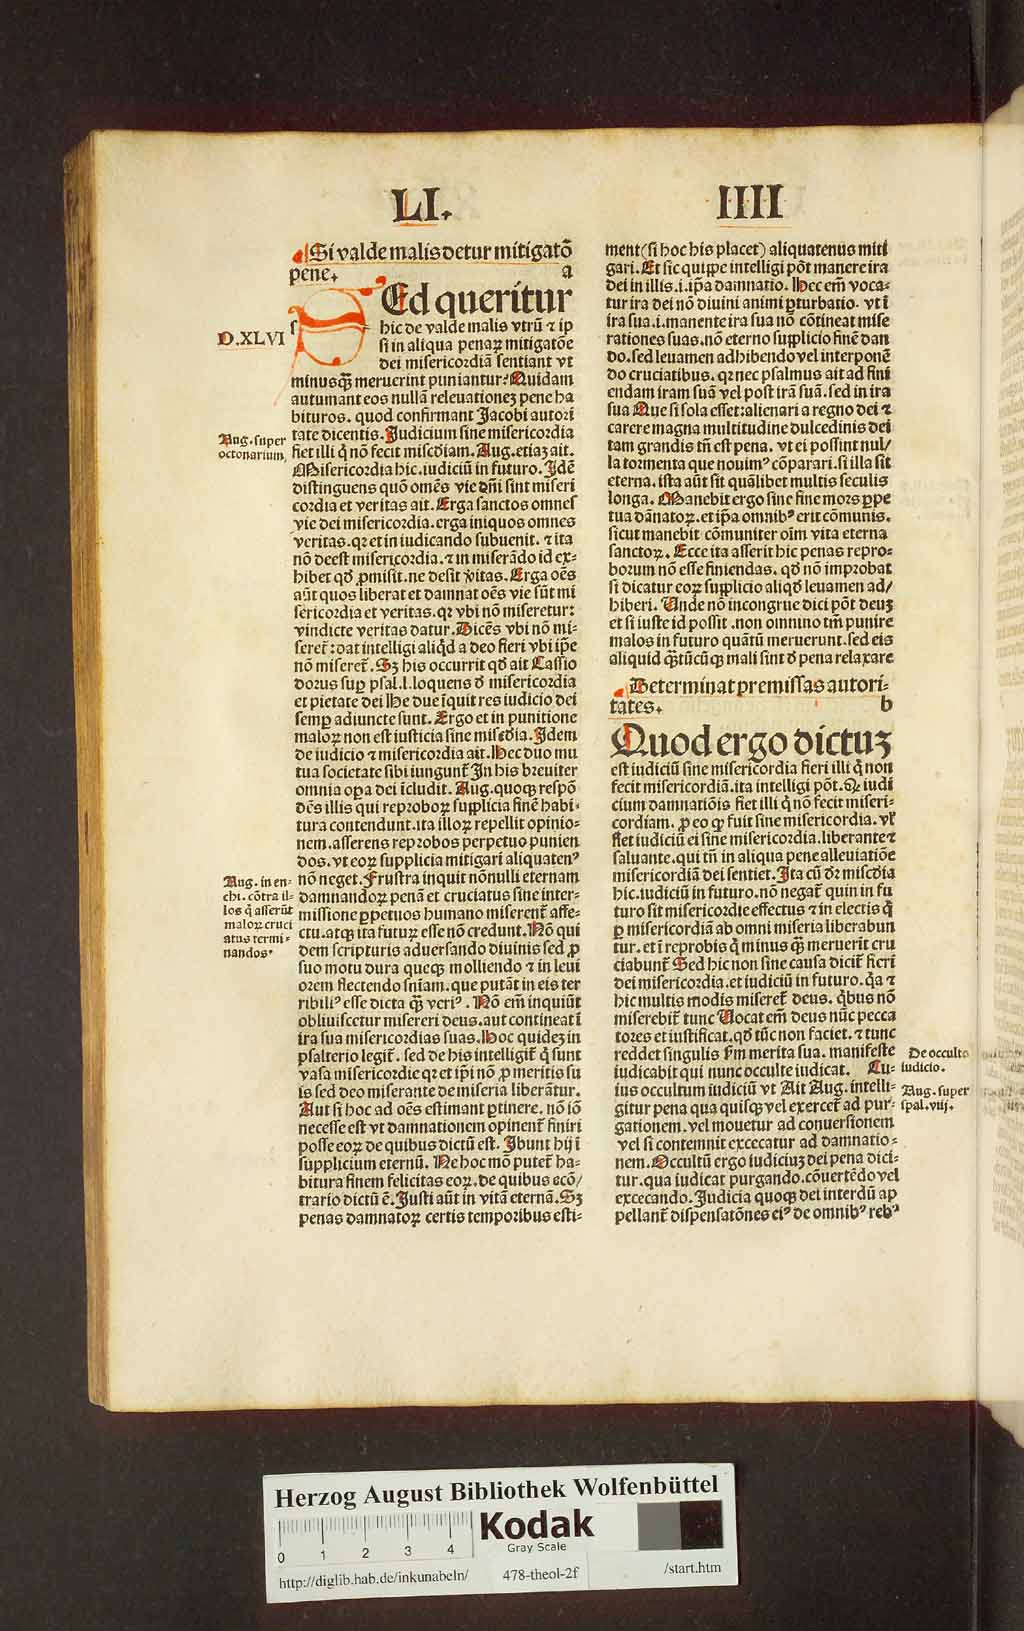 LI.
IIII
Si valde malis detur mitigatõ
pene. a
Sed queritur
hic de valde malis vtrũ ⁊ ip
si in aliqua penaꝝ mitigatõe
dei misericordiã sentiant vt
minusqꝫ meruerint puniantur? Quidam
autumant eos nullã releuationeꝫ pene ha
bituros. quod confirmant Jacobi autori
tate dicentis. Judicium sine misericordia
fiet illi q̃ nõ fecit miscdiam. Aug. etiaꝫ ait.
Misericordia hic. iudiciũ in futuro. Jdẽ
distinguens quõ omẽs vie dñi sint miseri
cordia et veritas ait. Erga sanctos omnes
vie dei misericordia. erga iniquos omnes
veritas. qꝛ et in iudicando subuenit. ⁊ ita
nõ deest misericordia. ⁊ in miserãdo id ex-
hibet qd̓ ꝓmisit. ne desit ṽitas. Erga oẽs
aũt quos liberat et damnat oẽs vie sũt mi
sericordia et veritas. qꝛ vbi nõ miseretur:
vindicte veritas datur. Dicẽs vbi nõ mi-
seret̃: dat intelligi aliq̃d a deo fieri vbi ip̃e
nõ miseret̃. Sꝫ his occurrit qd̓ ait Cassio
dorus suꝑ psal. l. loquens d̓ misericordia
et pietate dei He due ĩquit res iudicio dei
semꝑ adiuncte sunt. Ergo et in punitione
maloꝝ non est iusticia sine misc̃dia. Jdem
de iudicio ⁊ misericordia ait. Hec duo mu
tua societate sibi iungunt̃ Jn his breuiter
omnia oꝑa dei ĩcludit. Aug. quoqꝫ respõ
dẽs illis qui reproboꝝ supplicia finẽ habi-
tura contendunt. ita illoꝝ repellit opinio-
nem. asserens reprobos perpetuo punien
dos. vt eoꝝ supplicia mitigari aliquatenꝰ
nõ neget. Frustra inquit nõnulli eternam
damnandoꝝ penã et cruciatus sine inter-
missione ꝑpetuos humano miserent̃ affe-
ctu. atqꝫ ita futuꝝ esse nõ credunt. Nõ qui
dem scripturis aduersando diuinis sed ꝓ
suo motu dura queqꝫ molliendo ⁊ in leui
orem flectendo sniam. que putãt in eis ter
ribiliꝰ esse dicta qꝫ̃ veriꝰ. Nõ em̃ inquiũt
obliuiscetur misereri deus. aut contineat ĩ
ira sua misericordias suas. Hoc quideꝫ in
psalterio legit̃. sed de his intelligit̃ q̃ sunt
vasa misericordie qꝛ et ip̃i nõ ꝓ meritis su
is sed deo miserante de miseria liberãtur.
Aut si hoc ad oẽs estimant ꝑtinere. nõ iõ
necesse est vt damnationem opinent̃ finiri
posse eoꝝ de quibus dictũ est. Jbunt hij ĩ
supplicium eternũ. Ne hoc mõ putet̃ ha-
bitura finem felicitas eoꝝ. de quibus ecõ/
trario dictũ ẽ. Justi aũt in vitã eternã. Sꝫ
penas damnatoꝝ certis temporibus esti-
D.XLVI
Aug. super
octonarium
Aug. in en-
chi. cõtra il-
los q̃ asserũt
maloꝝ cruci
atus termi-
nandos.
ment (si hoc his placet) aliquatenus miti
gari. Et sic quippe intelligi põt manere ira
dei in illis. i. ip̃a damnatio. Hec em̃ voca-
tur ira dei nõ diuini animi ꝑturbatio. vt ĩ
ira sua. i. manente ira sua nõ cõtineat mise
rationes suas. nõ eterno supplicio finẽ dan
do. sed leuamen adhibendo vel interponẽ
do cruciatibus. qꝛ nec psalmus ait ad fini
endam iram suã vel post irã suã. sed in ira
sua Que si sola esset: alienari a regno dei ⁊
carere magna multitudine dulcedinis dei
tam grandis tñ est pena. vt ei possint nul/
la tormenta que nouimꝰ cõparari. si illa sit
eterna. ista aũt sit quãlibet multis seculis
longa. Manebit ergo sine fine mors ꝑpe
tua dãnatoꝝ. et ip̃a omnibꝰ erit cõmunis.
sicut manebit cõmuniter oĩm vita eterna
sanctoꝝ. Ecce ita asserit hic penas repro-
borum nõ esse finiendas. qd̓ nõ improbat
si dicatur eoꝝ supplicio aliqd̓ leuamen ad/
hiberi. Unde nõ incongrue dici põt deuꝫ
et si iuste id possit. non omnino tm̃ punire
malos in futuro quãtũ meruerunt. sed eis
aliquid qꝫ̃tũcũqꝫ mali sint d̓ pena relaxare
Determinat premissas autori-
tates. b
Quod ergo dictuꝫ
est iudiciũ sine misericordia fieri illi q̃ non
fecit misericordiã. ita intelligi põt. Qꝛ iudi
cium damnatiõis fiet illi q̃ nõ fecit miseri-
cordiam. ꝓ eo ꝙ fuit sine misericordia. vl̓
fiet iudiciũ ei sine misericordia. liberante ⁊
saluante. qui tñ in aliqua pene alleuiatiõe
misericordiã dei sentiet. Jta cũ dr̃ miscdia
hic. iudiciũ in futuro. nõ negat̃ quin in fu
turo sit misericordie effectus ⁊ in electis q̃
ꝑ misericordiã ab omni miseria liberabun
tur. et ĩ reprobis q̃ minus qꝫ̃ meruerĩt cru
ciabunt̃ Sed hic non sine causa dicit̃ fieri
dei misericordia. et iudiciũ in futuro. q̃a ⁊
hic multis modis miseret̃ deus. q̃bus nõ
miserebit̃ tunc Uocat em̃ deus nũc pecca
tores et iustificat. qd̓ tũc non faciet. ⁊ tunc
reddet singulis ẜm merita sua. manifeste
iudicabit qui nunc occulte iudicat. Cu-
ius occultum iudiciũ vt Ait Aug. intelli-
gitur pena qua quisqꝫ vel exercet̃ ad pur-
gationem. vel mouetur ad conuersionem
vel si contemnit excecatur ad damnatio-
nem. Occultũ ergo iudiciuꝫ dei pena dici-
tur. qua iudicat purgando. cõuertẽdo vel
excecando. Judicia quoqꝫ dei interdũ ap
pellant̃ dispensatõnes eiꝰ de omnibꝰ rebꝰ
De occulto
iudicio.
Aug. super
psal. viij.
Herzog August Bibliothek Wolfenbüttel
0 1 2 3 4
Kodak
Gray Scale
http://diglib.hab.de/inkunabeln/ 478-theol-2f /start.htm